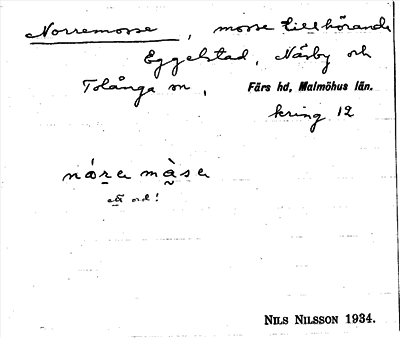 Norremosse, mosse tillhörande
Eggelstad, Näsby och
Tolånga sn, Färs hd, Malmöhus län.
kring 12
nóra màsa
ett ord!
NILS NILSSON 1934.